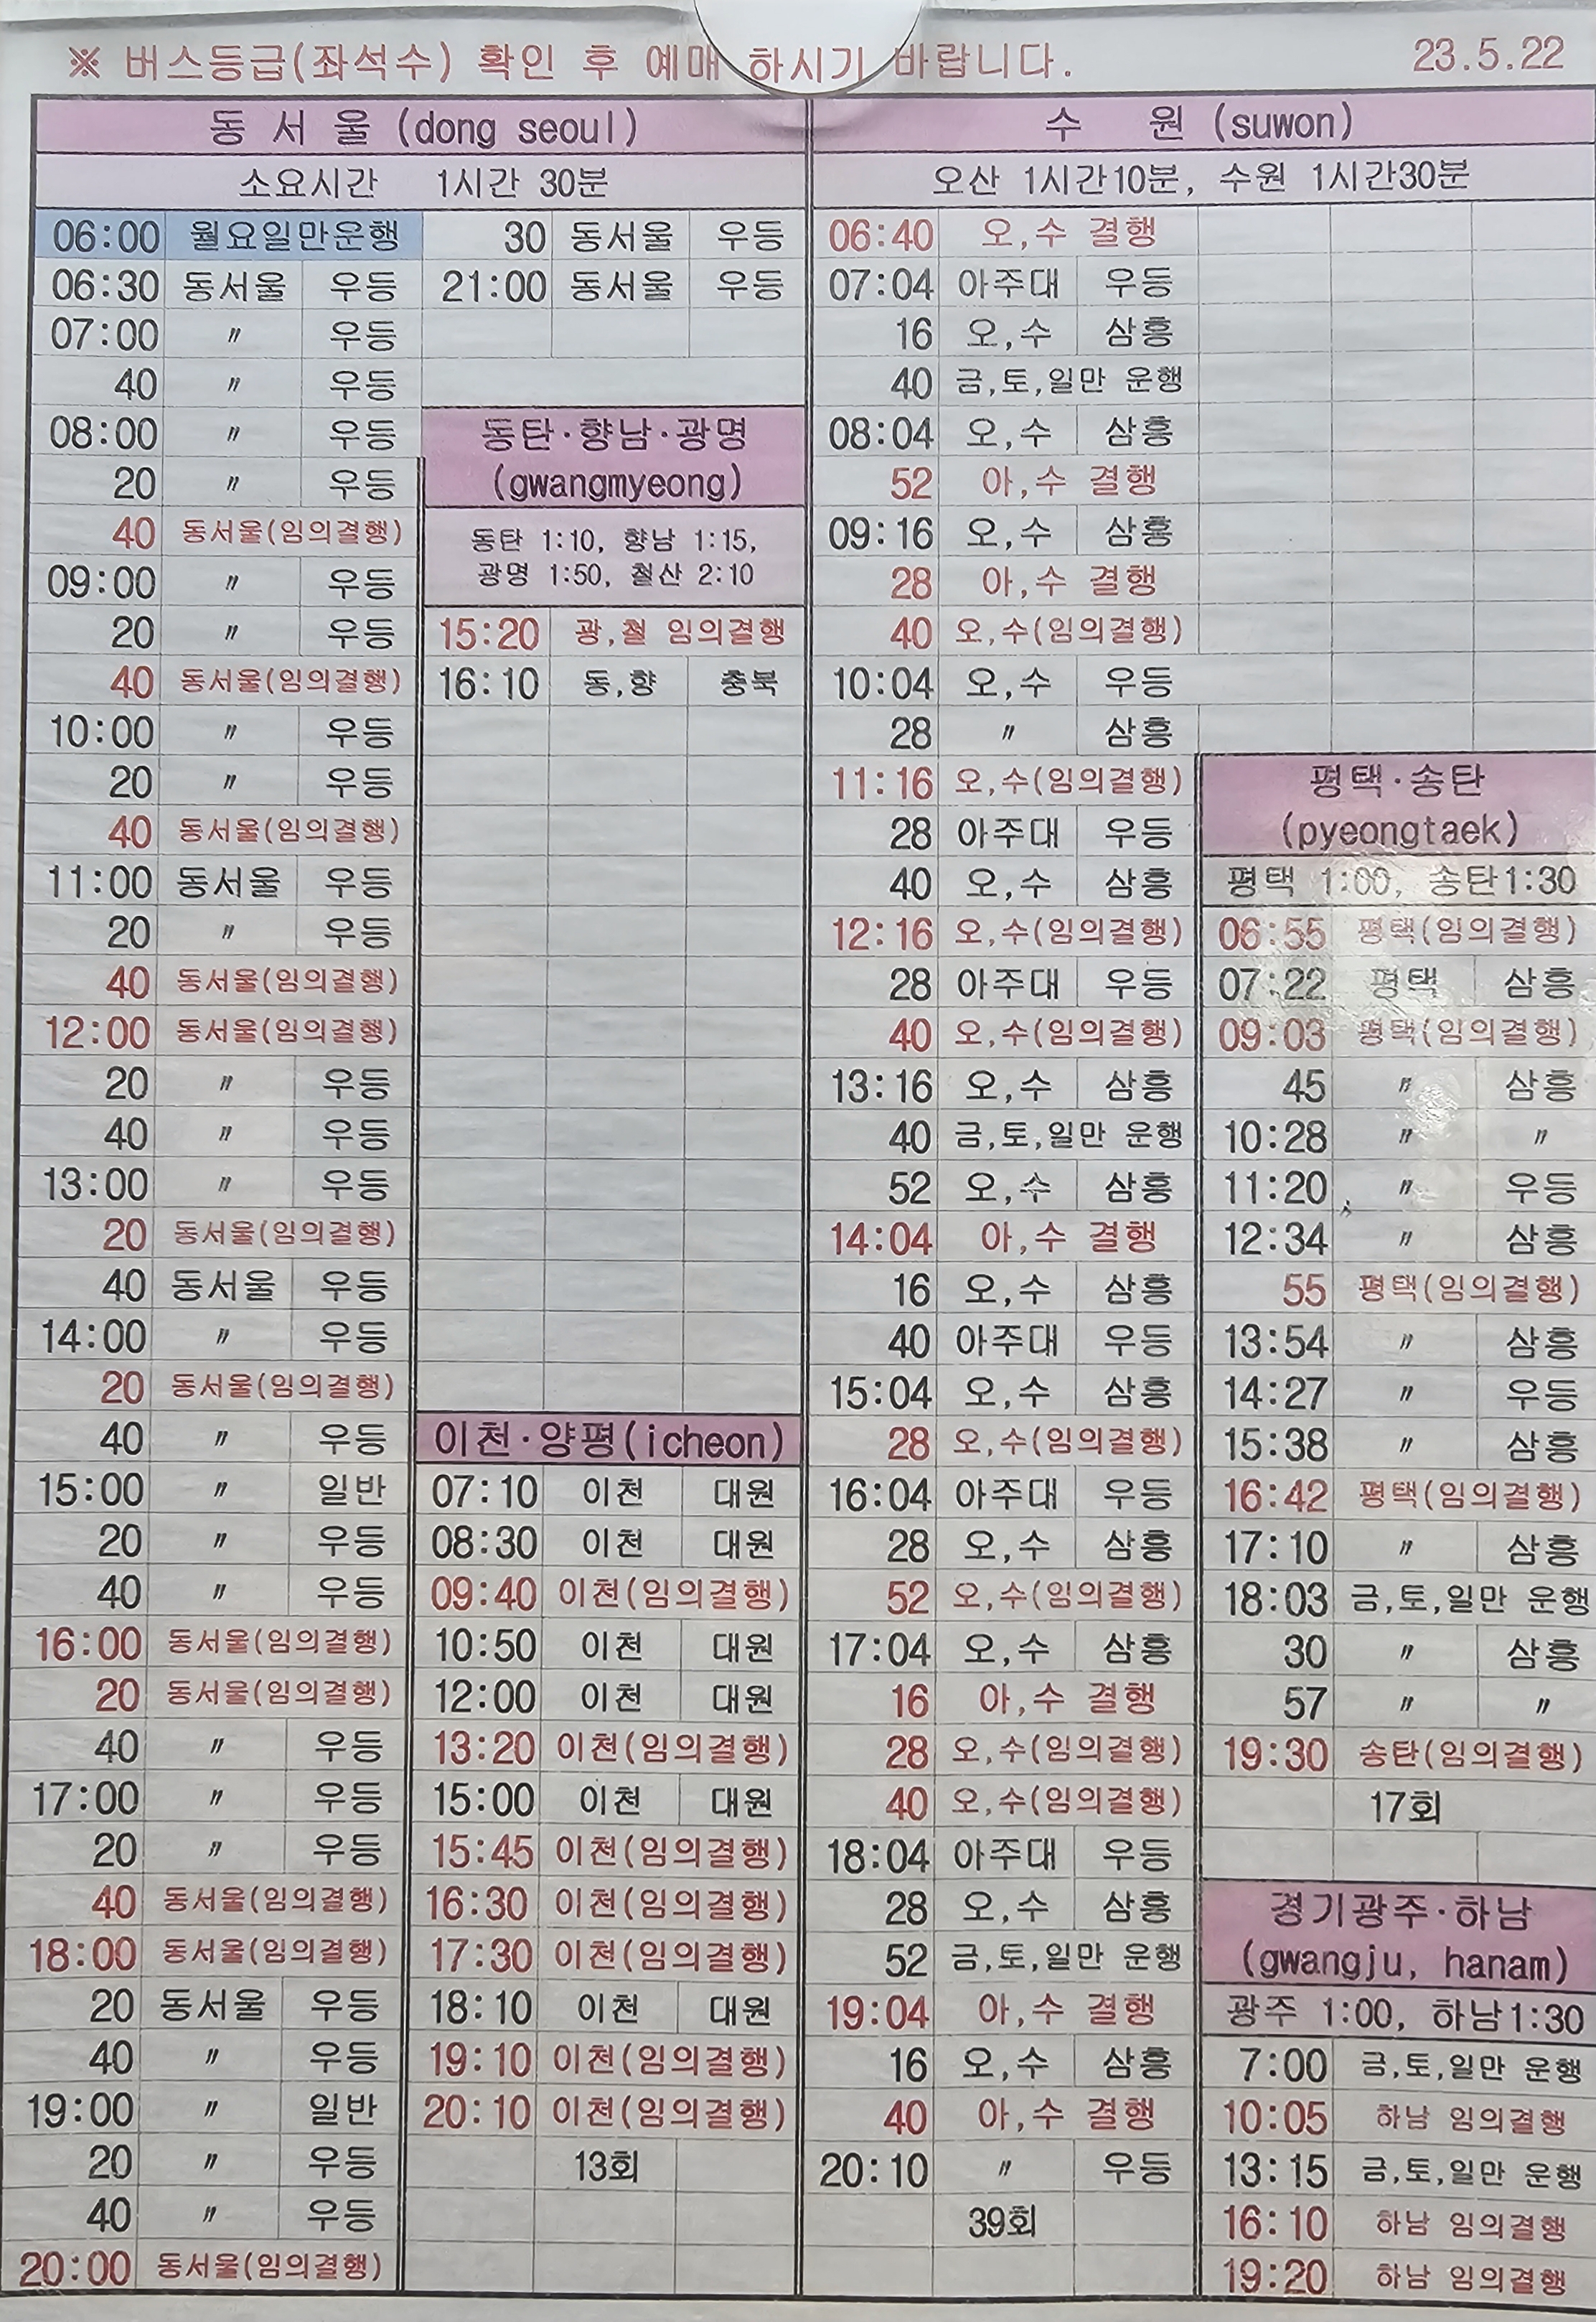 ※ 버스등급(좌석수) 확인 후 예매 하시기 바랍니다.
23.5.22
동 서 울 (dong seoul)
소요시간 1시간 30분
06:00 월요일만운행
06:30 동서울 우등
07:00 〃 우등
40 〃 우등
08:00 〃 우등
20 〃 우등
40 동서울(임의결행)
09:00 〃 우등
20 〃 우등
40 동서울(임의결행)
10:00 〃 우등
20 〃 우등
40 동서울(임의결행)
11:00 동서울 우등
20 〃 우등
40 동서울(임의결행)
12:00 동서울(임의결행)
20 〃 우등
40 〃 우등
13:00 〃 우등
20 동서울(임의결행)
40 동서울 우등
14:00 〃 우등
20 동서울(임의결행)
40 〃 우등
15:00 〃 일반
20 〃 우등
40 〃 우등
16:00 동서울(임의결행)
20 동서울(임의결행)
40 〃 우등
17:00 〃 우등
20 〃 우등
40 동서울(임의결행)
18:00 동서울(임의결행)
20 동서울 우등
40 〃 우등
19:00 〃 일반
20 〃 우등
40 〃 우등
20:00 동서울(임의결행)
30 동서울 우등
21:00 동서울 우등
동탄·향남·광명
(gwangmyeong)
동탄 1:10, 향남 1:15,
광명 1:50, 철산 2:10
15:20 광,철 임의결행
16:10 동,향 충북
이천·양평(icheon)
07:10 이천 대원
08:30 이천 대원
09:40 이천(임의결행)
10:50 이천 대원
12:00 이천 대원
13:20 이천(임의결행)
15:00 이천 대원
15:45 이천(임의결행)
16:30 이천(임의결행)
17:30 이천(임의결행)
18:10 이천 대원
19:10 이천(임의결행)
20:10 이천(임의결행)
13회
수 원 (suwon)
오산 1시간10분, 수원 1시간30분
06:40 오,수 결행
07:04 아주대 우등
16 오,수 삼흥
40 금,토,일만 운행
08:04 오,수 삼흥
52 아,수 결행
09:16 오,수 삼흥
28 아,수 결행
40 오,수(임의결행)
10:04 오,수 우등
28 〃 삼흥
11:16 오,수(임의결행)
28 아주대 우등
40 오,수 삼흥
12:16 오,수(임의결행)
28 아주대 우등
40 오,수(임의결행)
13:16 오,수 삼흥
40 금,토,일만 운행
52 오,수 삼흥
14:04 아,수 결행
16 오,수 삼흥
40 아주대 우등
15:04 오,수 삼흥
28 오,수(임의결행)
16:04 아주대 우등
28 오,수 삼흥
52 오,수(임의결행)
17:04 오,수 삼흥
16 아,수 결행
28 오,수(임의결행)
40 오,수(임의결행)
18:04 아주대 우등
28 오,수 삼흥
52 금,토,일만 운행
19:04 아,수 결행
16 오,수 삼흥
40 아,수 결행
20:10 〃 우등
39회
평택·송탄
(pyeongtaek)
평택 1:00, 송탄1:30
06:55 평택(임의결행)
07:22 평택 삼흥
09:03 평택(임의결행)
45 〃 삼흥
10:28 〃 〃
11:20 〃 우등
12:34 〃 삼흥
55 평택(임의결행)
13:54 〃 삼흥
14:27 〃 우등
15:38 〃 삼흥
16:42 평택(임의결행)
17:10 〃 삼흥
18:03 금,토,일만 운행
30 〃 삼흥
57 〃 〃
19:30 송탄(임의결행)
17회
경기광주·하남
(gwangju, hanam)
광주 1:00, 하남1:30
7:00 금,토,일만 운행
10:05 하남 임의결행
13:15 금,토,일만 운행
16:10 하남 임의결행
19:20 하남 임의결행